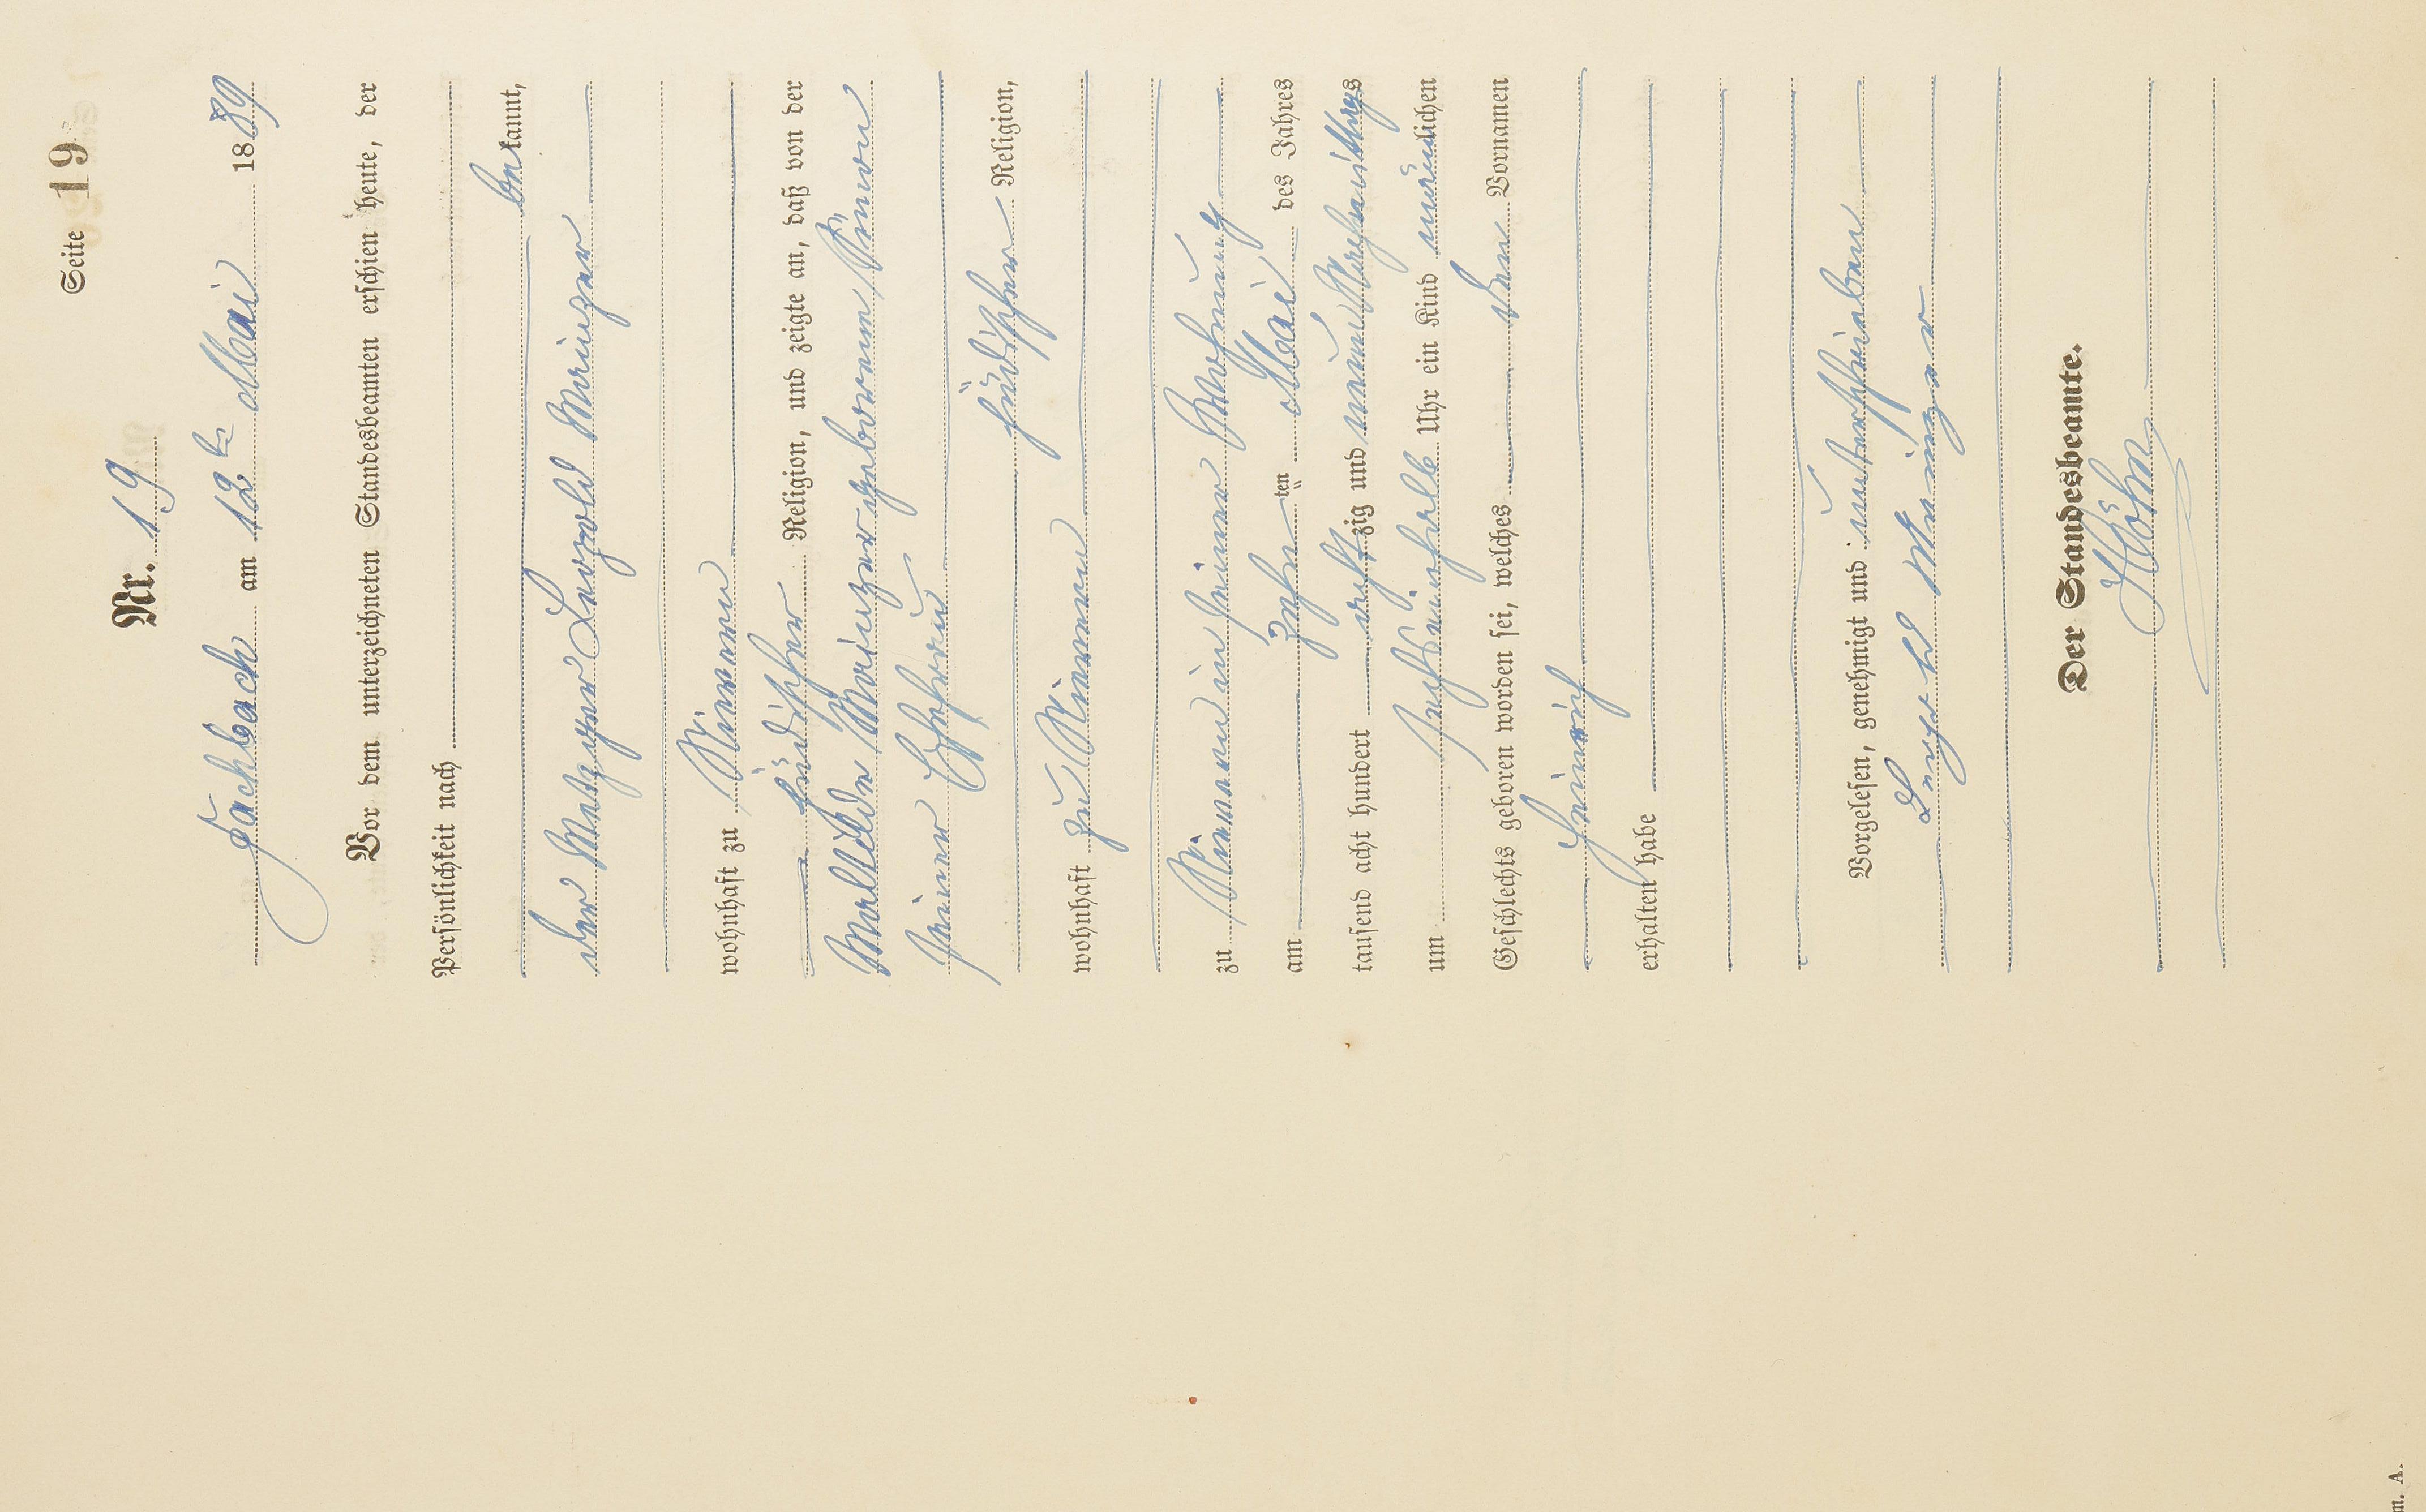 Seite 19.
Nr. 19
Fachbach am 12ten Mai 1889
Vor dem unterzeichneten Standesbeamten erschien heute, der
Persönlichkeit nach
bekannt,
der Metzger Leopold Mainzer
wohnhaft zu Nievern
jüdischer Religion, und zeigte an, daß von der
Mathilde Mainzer geborenen Simon
seiner Ehefrau
jüdischer Religion,
wohnhaft zu Nievern
zu Nievern in seiner Wohnung
am zehn ten Mai des Jahres
tausend acht hundert acht zig und neun Nachmittags
um Uhr ein Kind männlichen
Geschlechts geboren worden sei, welches den Vornamen
Heinrich
erhalten habe
Vorgelesen, genehmigt und unterschrieben
Leopold Mainzer
Der Standesbeamte.
Höhn
m. A.